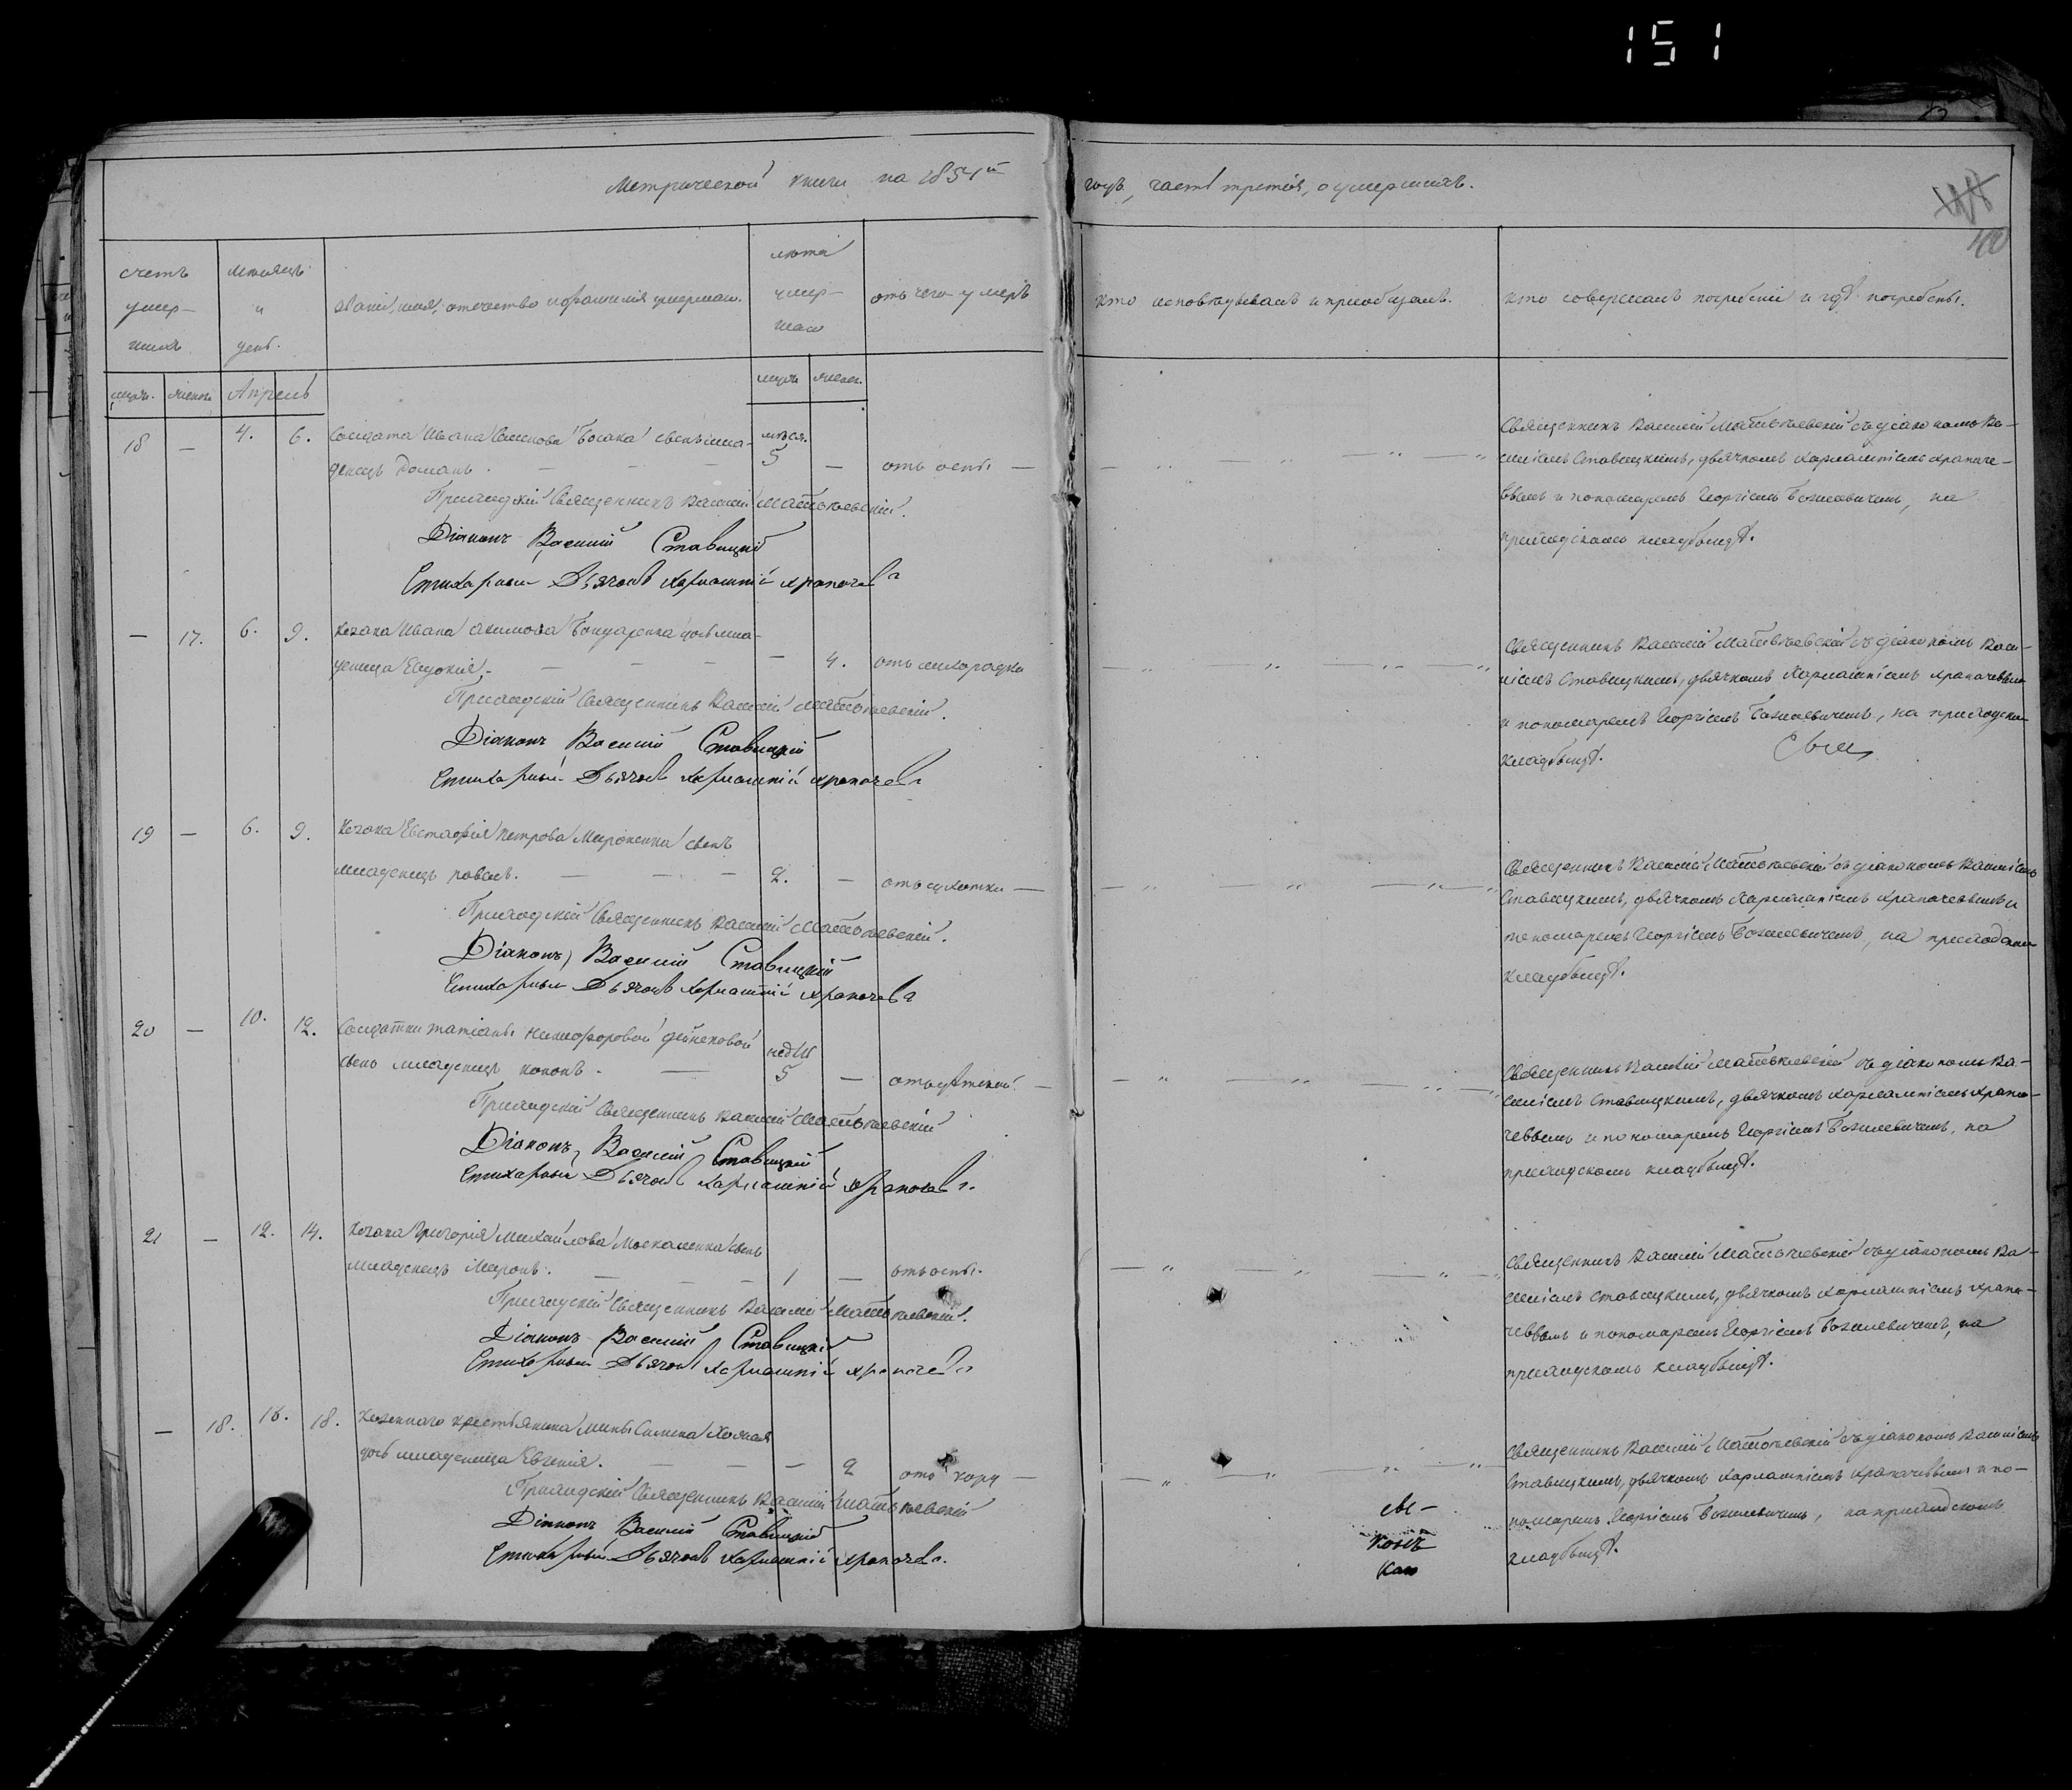 151
Метрической книги на 1854й
годъ, часть третія, о умершихъ.
400
счетъ
умер-
шихъ
мѣсяцъ
и
день.
Званіе, имя, отечество и фамилія умершаго.
лѣта
умер-
шаго
отъ чего умеръ
кто исповѣдывалъ и пріобщалъ.
кто совершалъ погребеніе и гдѣ погребены.
муж. женск. Апрель
муж. женск.
18 — 4. 6. Солдата Ивана Семенова Босака сынъ мла-
мѣся.
денецъ Доманъ. — — — 5 — отъ оспы —
Приходскій Священникъ Василій Матвѣевскій.
Діаконъ Василій Ставицкій
Стихарный Дьячокъ Харлампій Храпачевъ
Священникъ Василій Матвѣевскій съ діакономъ Ва-
силіемъ Ставицкимъ, дьячкомъ Харлампіемъ Храпаче-
вымъ и пономаремъ Георгіемъ Божкевичемъ, на
приходскомъ кладбищѣ.
— 17. 6. 9. Козака Ивана Акимова Бондаренка дочь мла-
деница Евдокія. — — — — 4. отъ лихорадки
Приходскій Священникъ Василій Матвѣевскій.
Діаконъ Василій Ставицкій
Стихарный Дьячокъ Харлампій Храпачевъ
Священникъ Василій Матвѣевскій съ діакономъ Васи-
ліемъ Ставицкимъ, дьячкомъ Харлампіемъ Храпачевымъ
и пономаремъ Георгіемъ Божкевичемъ, на приходском
кладбищѣ.
19 — 6. 9. Козака Евстафія Петрова Мироненка сынъ
младенецъ Павелъ. — — — 2. — отъ сухотки —
Приходскій Священникъ Василій Матвѣевскій.
Діаконъ Василій Ставицкій
Стихарный Дьячокъ Харлампій Храпачевъ
Священникъ Василій Матвѣевскій съ діакономъ Василіемъ
Ставицкимъ, дьячкомъ Харлампіемъ Храпачевымъ и
пономаремъ Георгіемъ Божкевичемъ, на приходском
кладбищѣ.
20 — 10. 12. Солдатки Татіаны Никифоровой Дейнековой
недѣл
сынъ младенецъ Кононъ. — 5 — отъ дѣтской. —
Приходскій Священникъ Василій Матвѣевскій
Діаконъ, Василій Ставицкій
Стихарный Дьячокъ Харлампій Храпачевъ.
Священникъ Василій Матвѣевскій съ діакономъ Ва-
силіемъ Ставицкимъ, дьячкомъ Харлампіемъ Храпа-
чевымъ и пономаремъ Георгіемъ Божкевичемъ, на
приходскомъ кладбищѣ.
21 — 12. 14. Козака Григорія Михайлова Москаленка сынъ
младенецъ Миронъ. — — — 1 — отъ оспы.
Приходскій Священникъ Василій Матвѣевскій.
Діаконъ Василій Ставицкій
Стихарный Дьячокъ Харлампій Храпачевъ
Священникъ Василій Матвѣевскій съ діакономъ Ва-
силіемъ Ставицкимъ, дьячкомъ Харлампіемъ Храпа-
чевымъ и пономаремъ Георгіемъ Божкевичемъ, на
приходскомъ кладбищѣ.
— 18. 16. 18. Казеннаго крестьянина Мины
дочь младеница Евгенія. — — — 2 отъ кору —
Приходскій Священникъ Василій Матвѣевскій
Діаконъ Василій Ставицкій
Стихарный Дьячокъ Харлампій Храпачевъ.
Священникъ Василій Матвѣевскій съ діакономъ Василіемъ
Ставицкимъ, дьячкомъ Харлампіемъ Храпачевымъ и по-
номаремъ Георгіемъ Божкевичемъ, на приходскомъ
кладбищѣ.